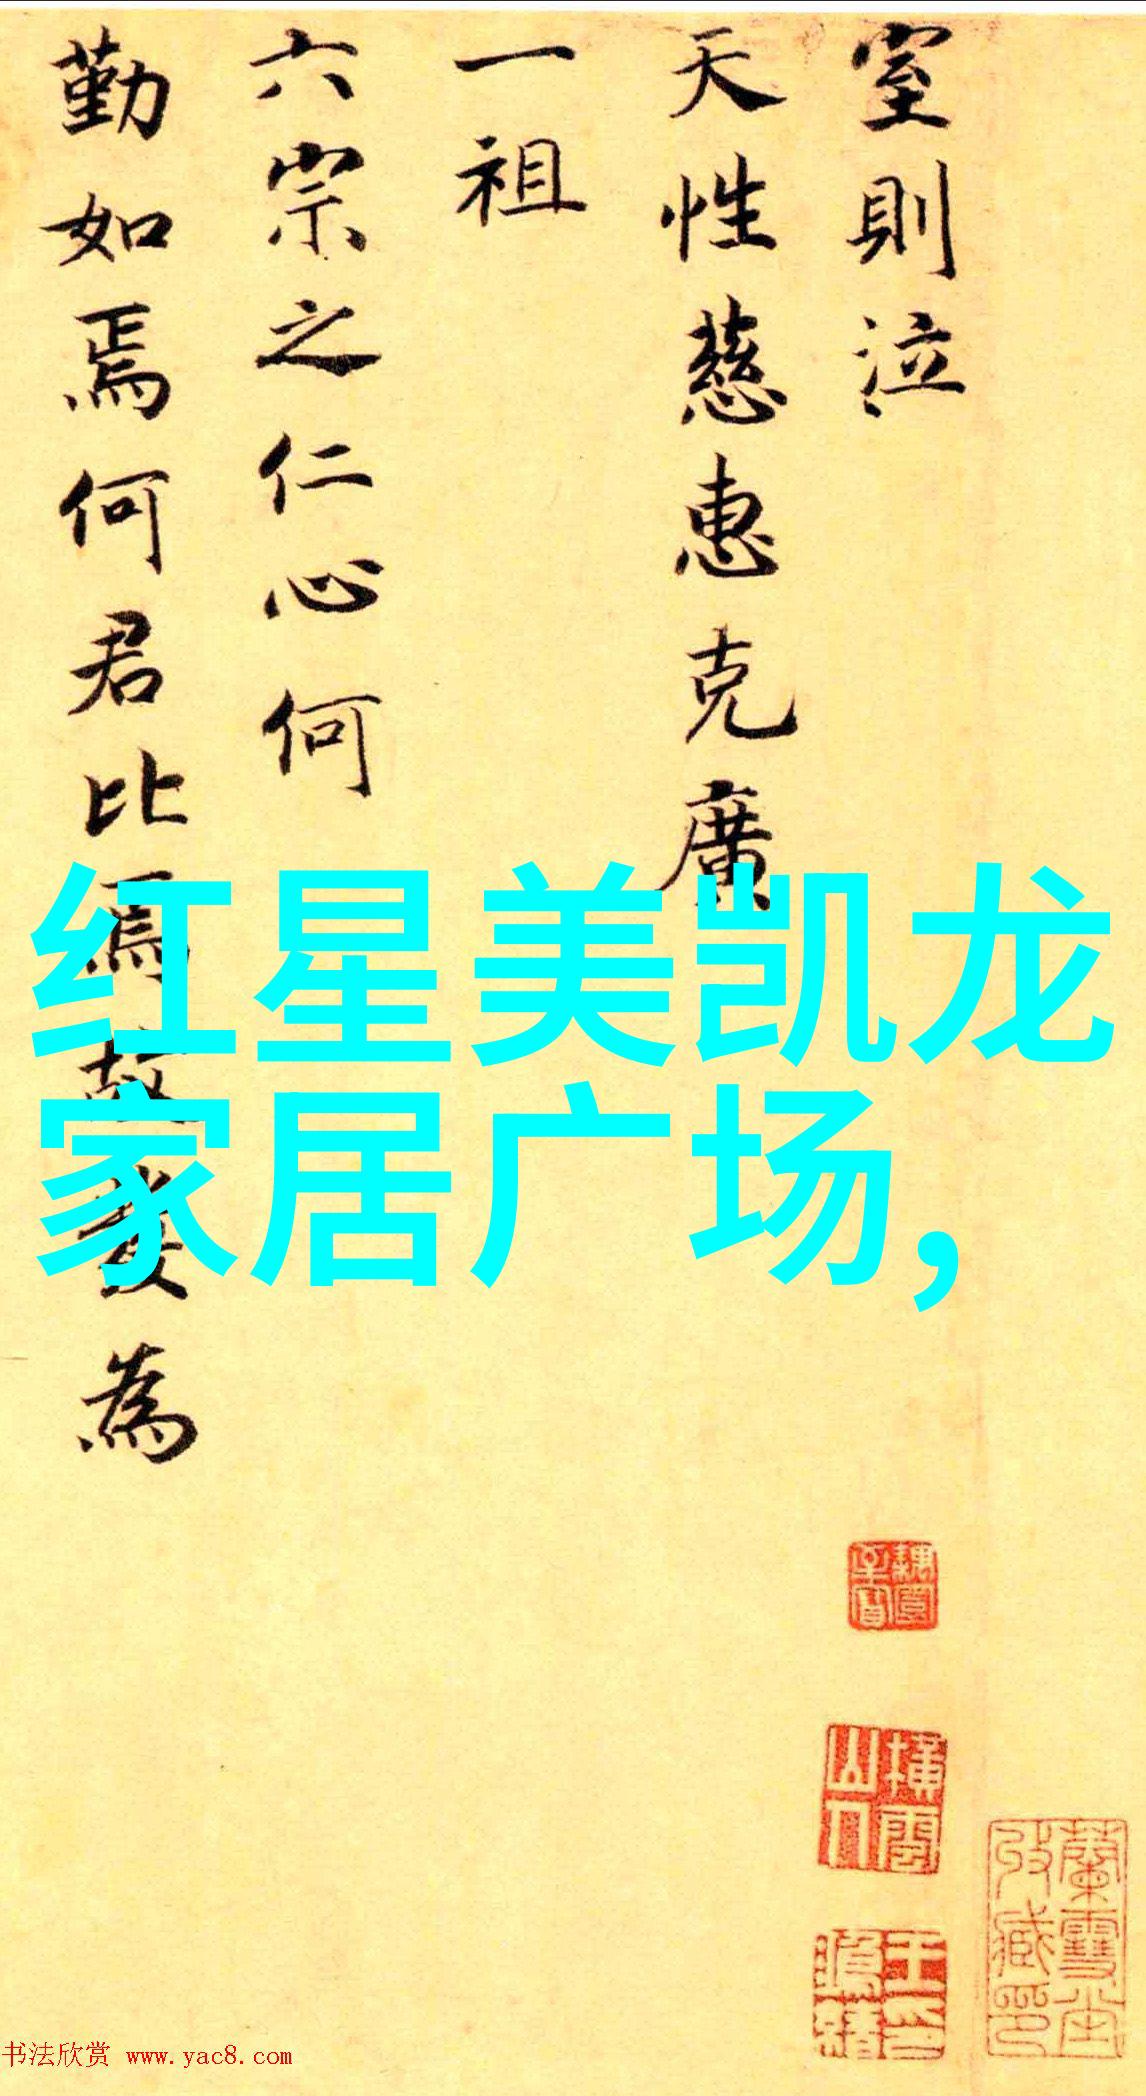 室則泣
天性慈惠克廣
一祖
六宗之仁心何
勤如焉何君比焉故爰為
红星美凯龙
家居广场,
书法欣赏 www.yac8.com